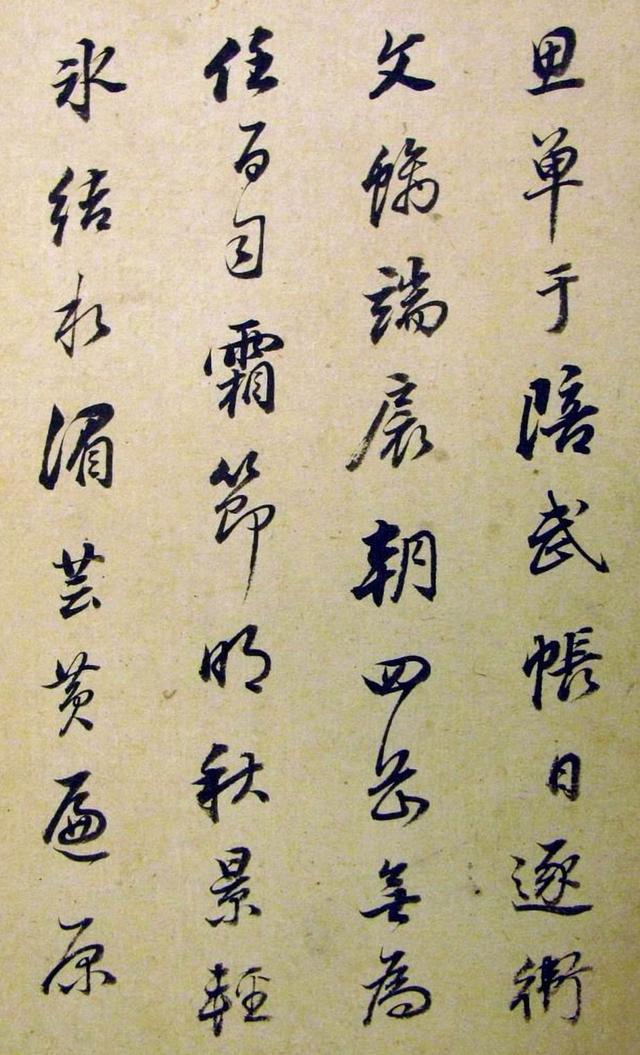 思單于陪武帳日逐衛
文𧑐端扆朝四岳無為
任百司霜節明秋景輕
冰結水湄芸黃遍原